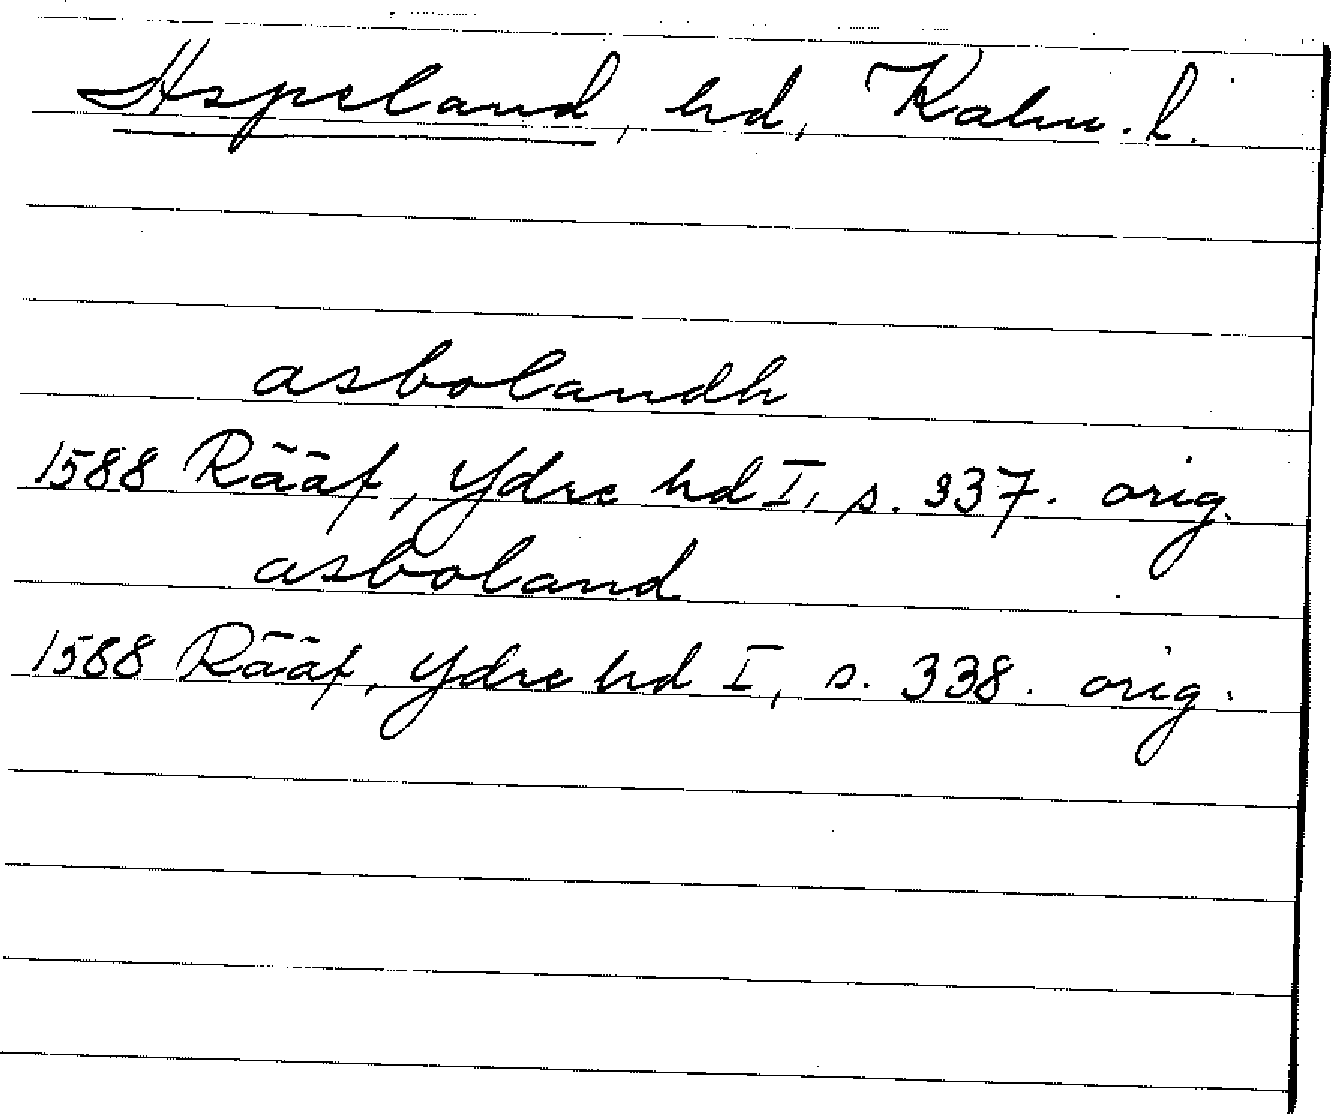 Aspeland, hd, Kalm. l.
asbolandh
1588 Rääf, Ydre hd I, s. 337. orig.
asboland
1588 Rääf, Ydre hd I, s. 338. orig.